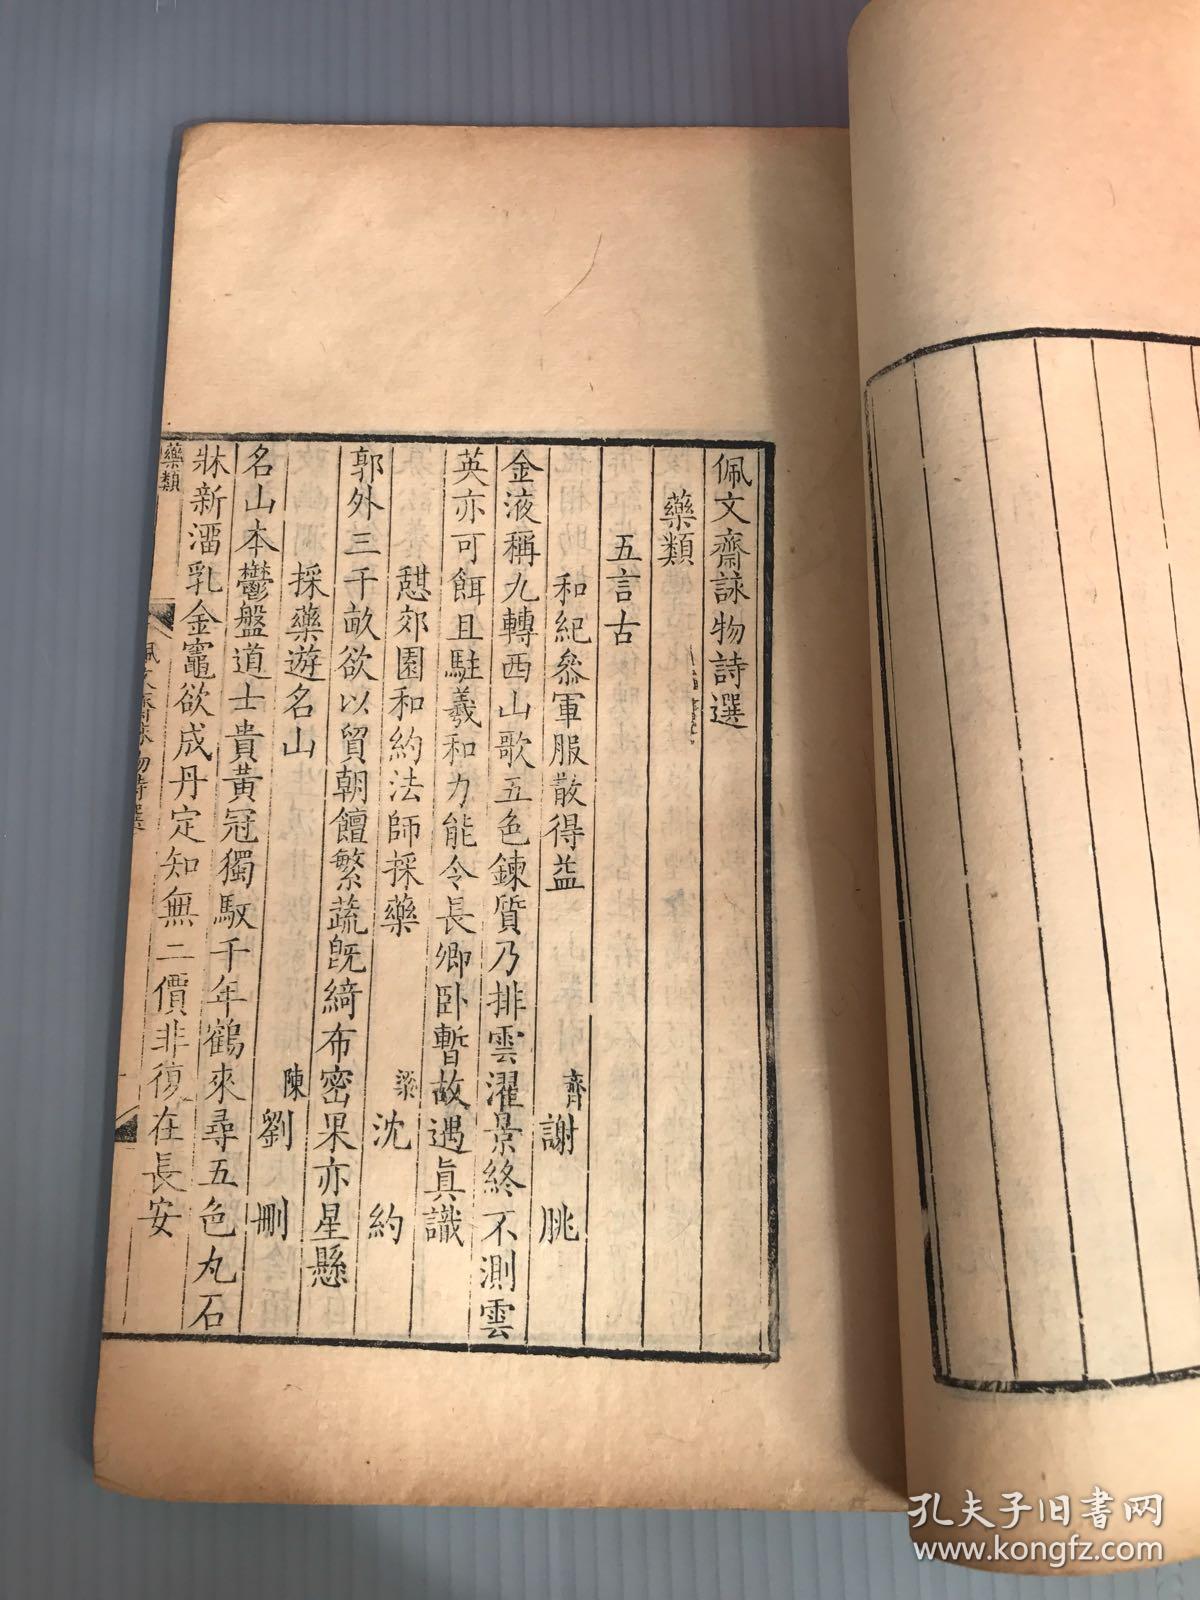 佩文齋詠物詩選
藥類
五言古
和紀叅軍服散得益 齊 謝朓
金液稱九轉西山歌五色鍊質乃排雲濯景終不測雲
英亦可餌且駐羲和力能令長卿卧暫故遇眞識
憇郊園和約法師採藥 梁 沈約
郭外三千畝欲以貿朝饘繁蔬旣綺布密果亦星懸
採藥遊名山 陳 劉刪
名山本鬱盤道士貴黃冠獨馭千年鶴來尋五色丸石
牀新溜乳金竈欲成丹定知無二價非復在長安
藥類
佩文齋詠物詩選
孔夫子旧书网
www.kongfz.com